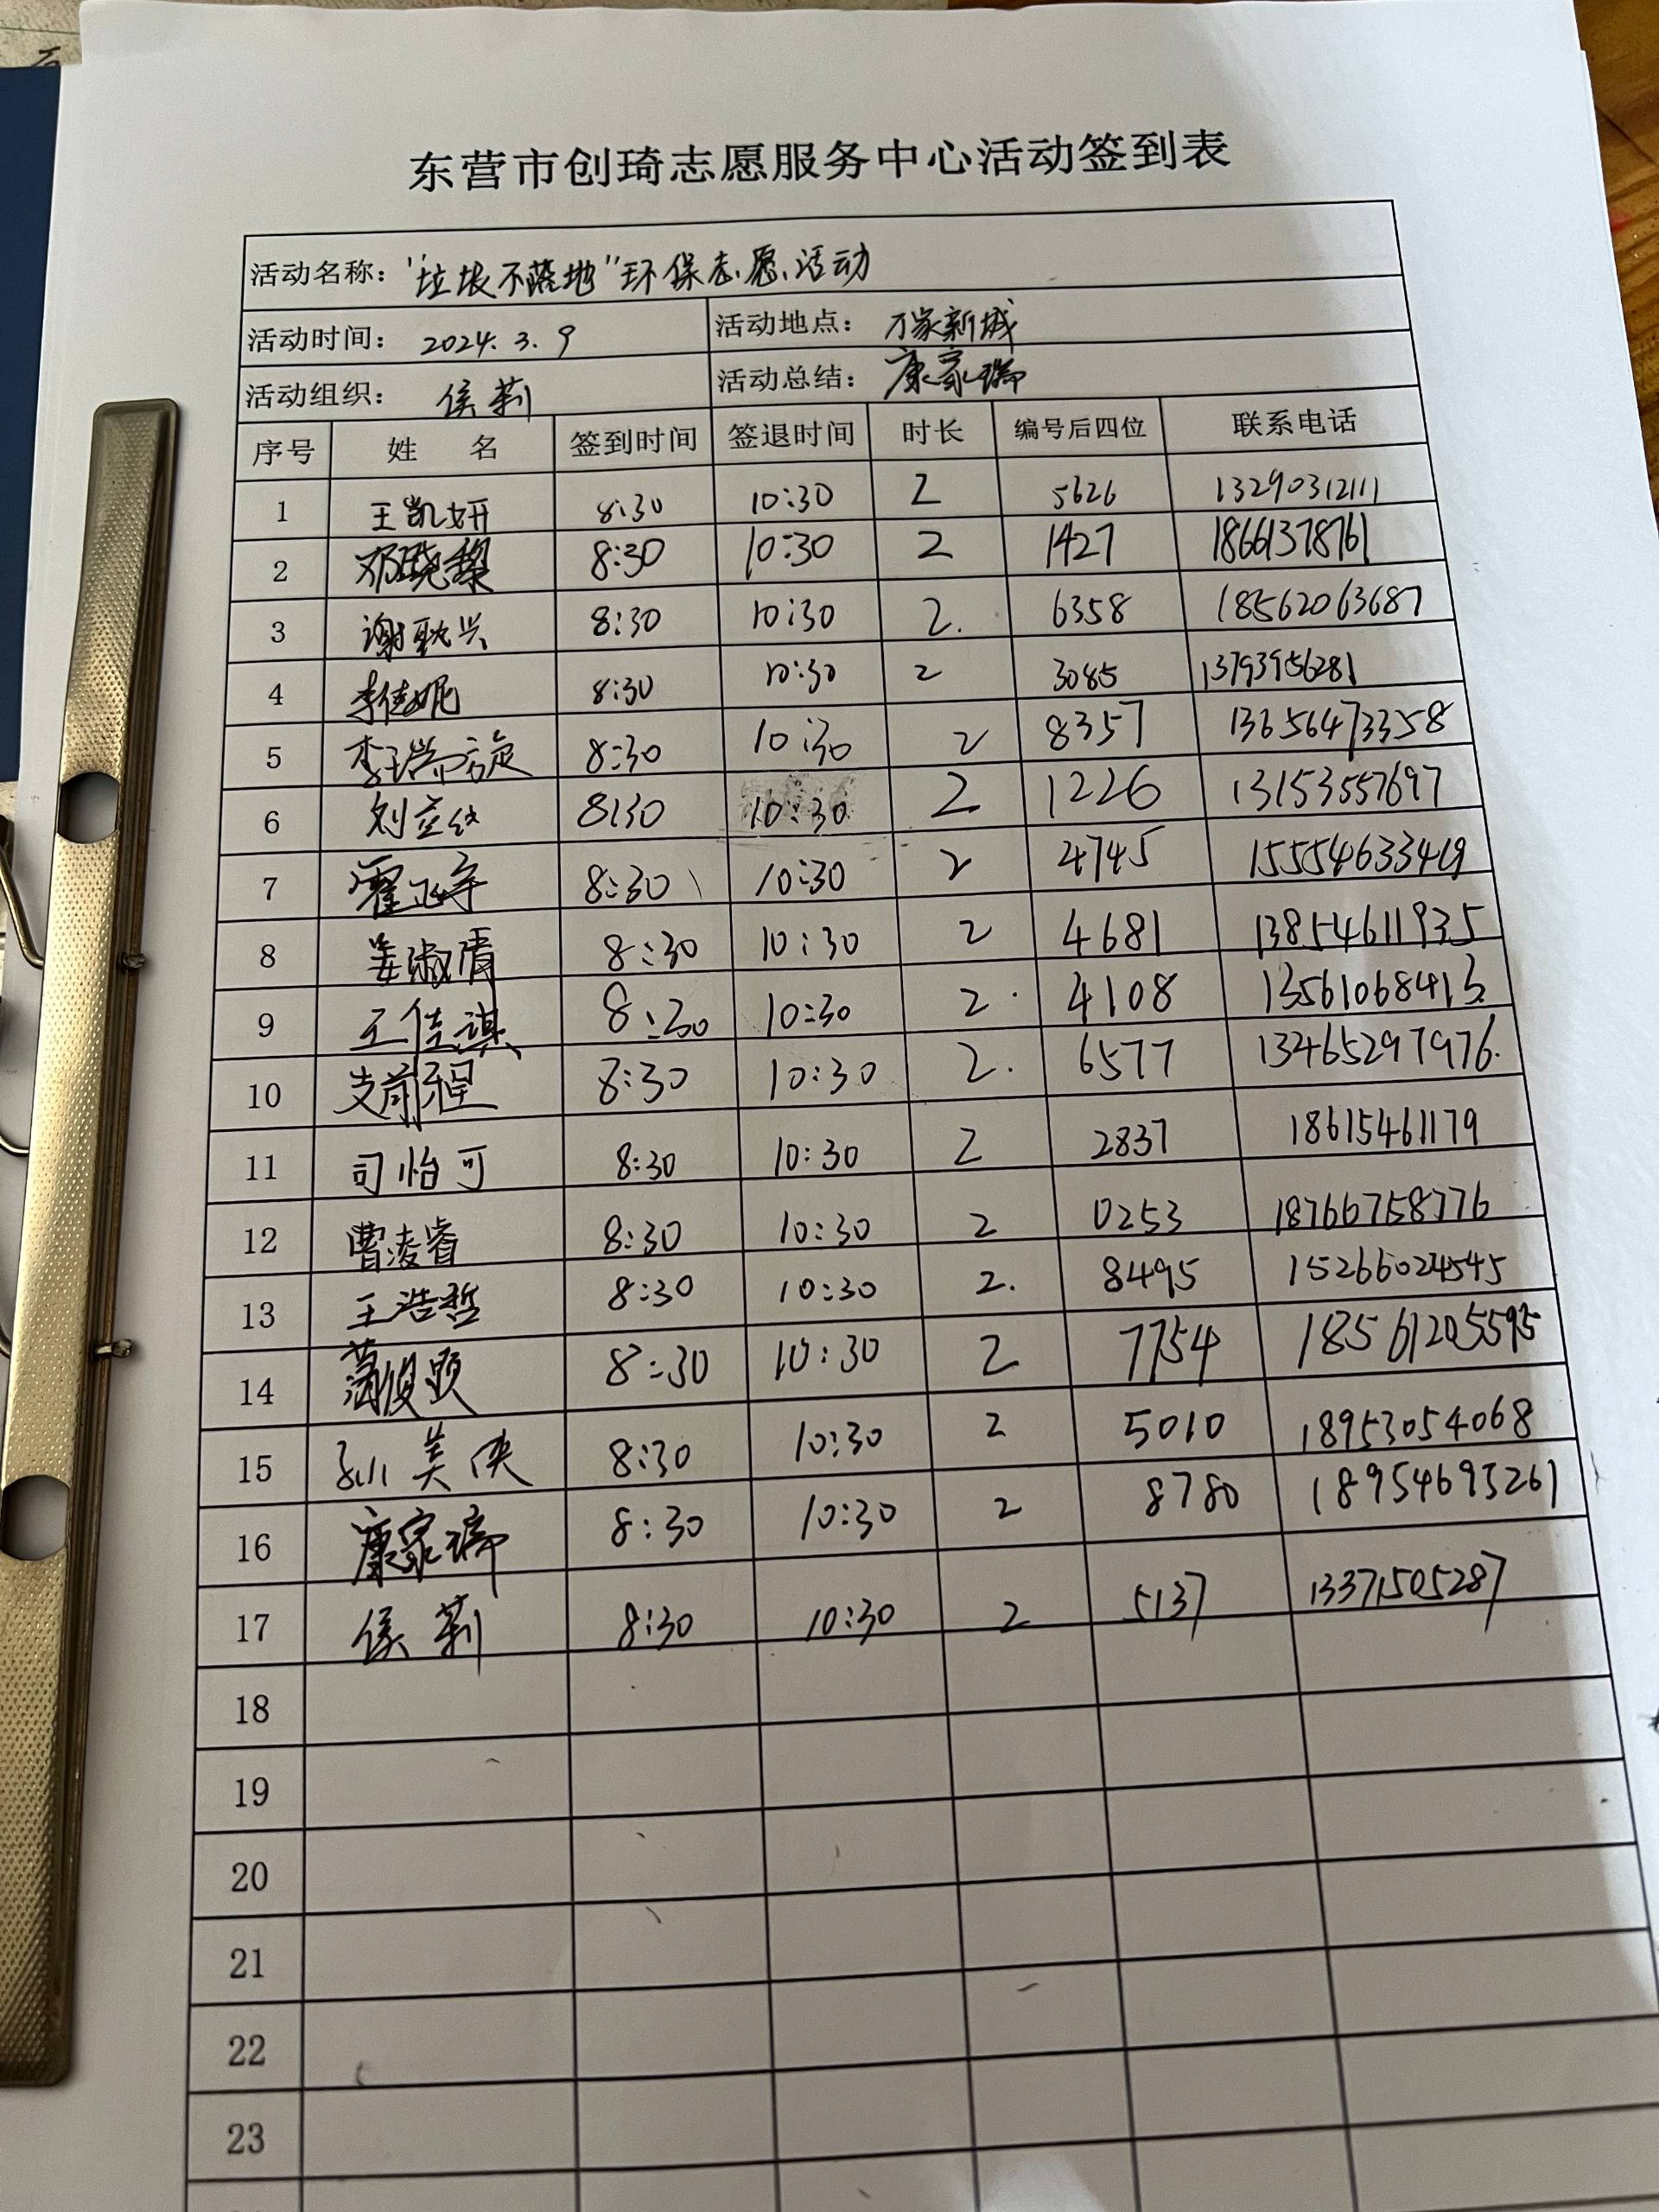 东营市创琦志愿服务中心活动签到表
活动名称："垃圾不落地"环保志愿活动
活动时间： 2024.3.9 活动地点： 万家新城
活动组织： 侯莉 活动总结： 康家瑞
序号 姓 名 签到时间 签退时间 时长 编号后四位 联系电话
1 王凯妍 8:30 10:30 2 5626 13290312111
2 邓晓黎 8:30 10:30 2 1427 18661378761
3 谢耿兴 8:30 10:30 2. 6358 18562063687
4 李佳妮 8:30 10:30 2 3085 13793956281
5 李瑞旋 8:30 10:30 2 8357 13656473358
6 8:30 10:30 2 1226 13153557697
7 8:30 10:30 2 4745 15554633419
8 姜淑倩 8:30 10:30 2 4681 13854611935
9 王佳淇 8:30 10:30 2 4108 13561068413
10 支前程 8:30 10:30 2. 6577 13465297976.
11 司怡可 8:30 10:30 2 2837 18615461179
12 曹凌睿 8:30 10:30 2 0253 18766758776
13 王浩哲 8:30 10:30 2. 8495 15266024545
14 8:30 10:30 2 7754 18561205595
15 孙美侠 8:30 10:30 2 5010 18953054068
16 康家瑞 8:30 10:30 2 8780 18954695261
17 侯莉 8:30 10:30 2 5137 13371505287
18
19
20
21
22
23